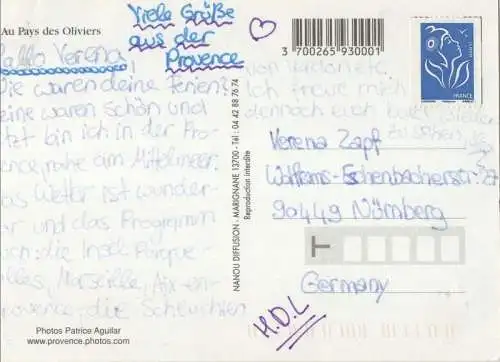 Au Pays des Oliviers
Viele Grüße
aus der
Provence
Hallo Verena,
Wie waren deine Ferien?
Meine waren schön und
jetzt bin ich in der Pro-
vence, nahe am Mittelmeer.
Das Wetter ist wunder-
bar und das Programm
auch: die Insel Porque-
rolles, Marseille, Aix-en-
Provence, die Schluchten
von Verdon etc.
Ich freue mich
dennoch euch alle wieder
zu sehen
3 700265 930001
FRANCE
Verena Zapf
Wolframs-Eschenbacherstr.
90449 Nürnberg
Germany
H.D.L
NANOU DIFFUSION - MARIGNANE 13700 - Tél : 04 42 88 76 74
Reproduction interdite
Photos Patrice Aguilar
www.provence.photos.com